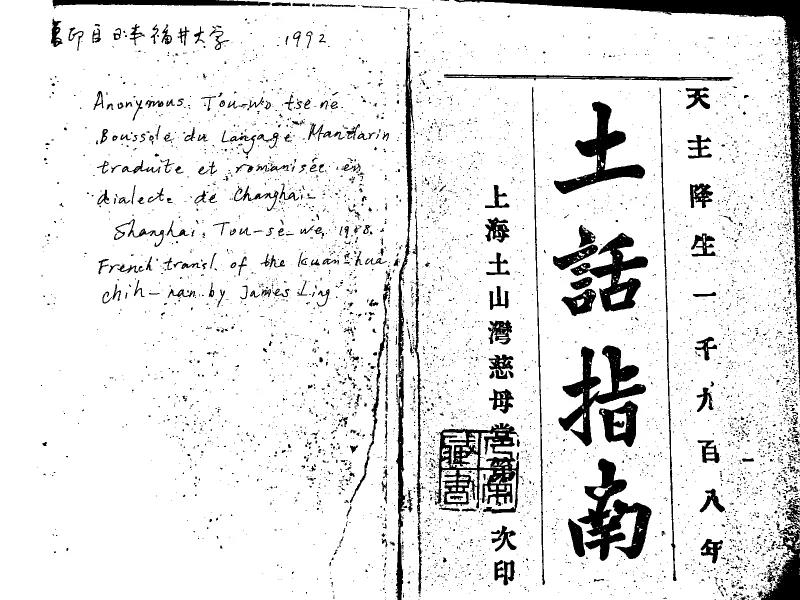 复印自日本福井大学 1992
Anonymous. Tou-wo tse né.
Boussole du Langage Mandarin
traduite et romanisée en
dialecte de Changhai.
Shanghai, Tou-sè-wè, 1908.
French transl. of the Kuan-hua
chih-nan by James Ling
天主降生一千九百八年
土話指南
上海土山灣慈母堂第 次印
藏書